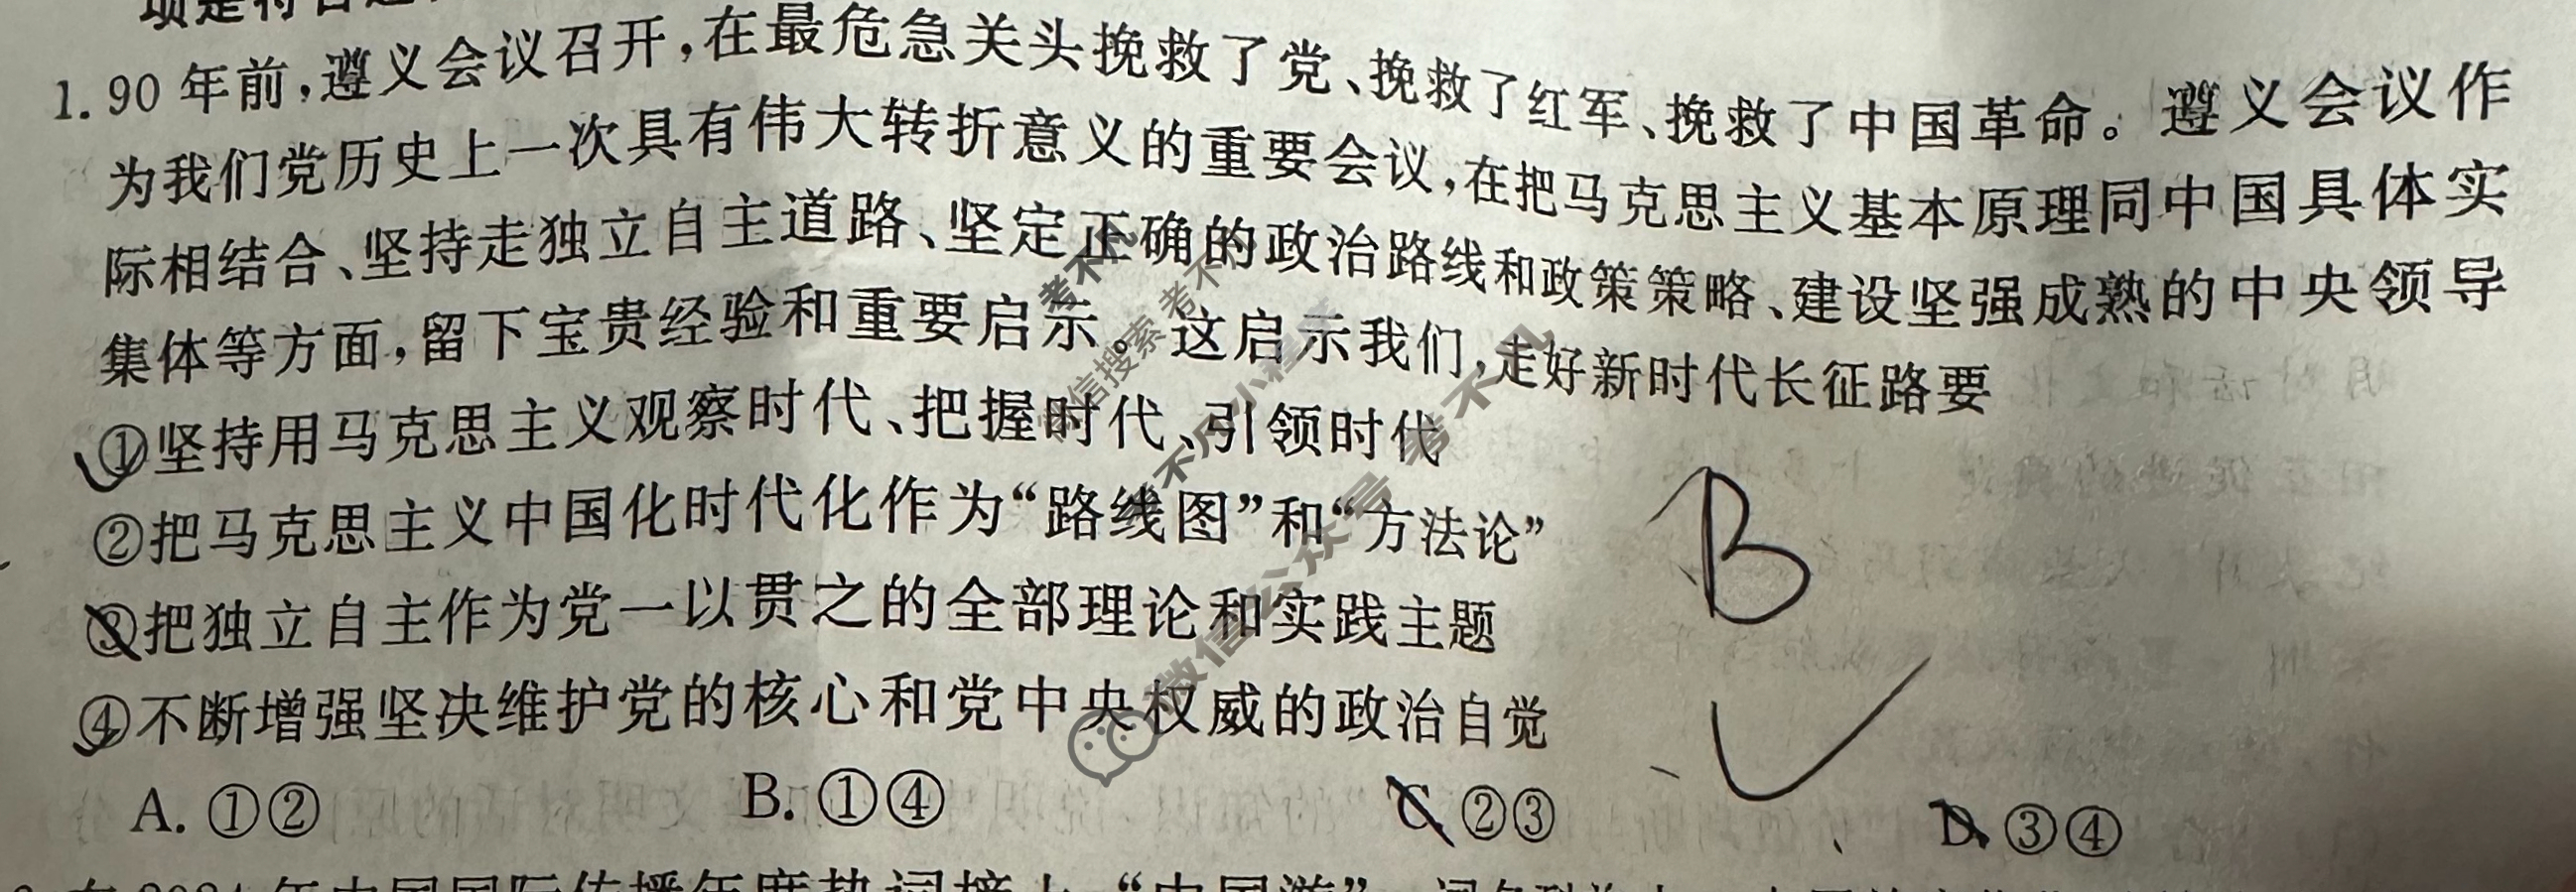 1. 90 年前，遵义会议召开，在最危急关头挽救了党、挽救了红军、挽救了中国革命。遵义会议作
为我们党历史上一次具有伟大转折意义的重要会议，在把马克思主义基本原理同中国具体实
际相结合、坚持走独立自主道路、坚定正确的政治路线和政策策略、建设坚强成熟的中央领导
集体等方面，留下宝贵经验和重要启示。这启示我们，走好新时代长征路要
①坚持用马克思主义观察时代、把握时代、引领时代
②把马克思主义中国化时代化作为“路线图”和“方法论”
③把独立自主作为党一以贯之的全部理论和实践主题
④不断增强坚决维护党的核心和党中央权威的政治自觉
B
A. ①② B. ①④ C. ②③ D. ③④
考不凡
微信搜索 考不凡
考不凡小程序
微信公众号 考不凡